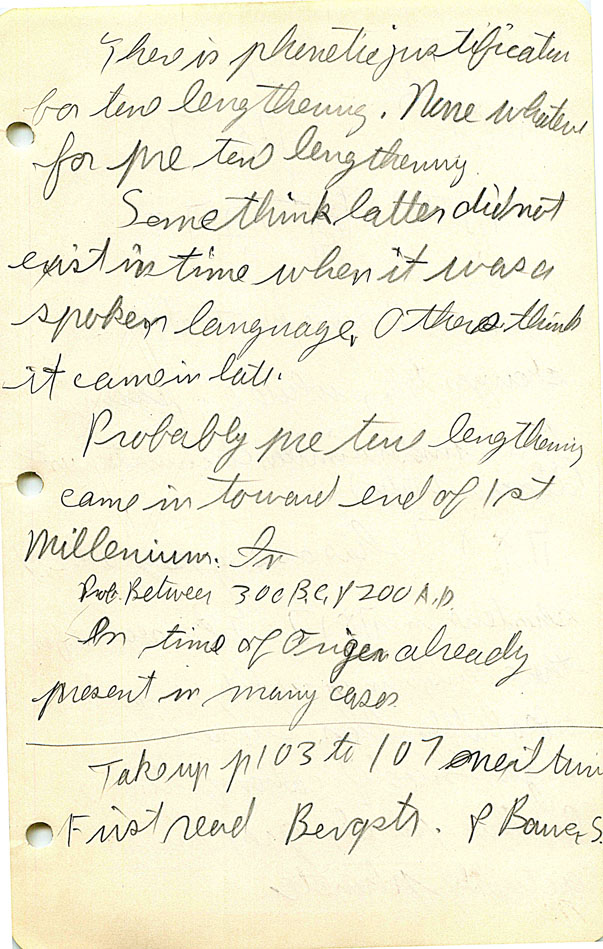 There is phonetic justification
for tone lengthening. None whatever
for pre tone lengthening
Some think latter did not
exist in time when it was a
spoken language, Others think
it came in late.
Probably pre tone lengthening
came in toward end of 1st
Millenium. In
Prob. Between 300 B.C. & 200 A.D.
In time of Origen already
present in many cases
Take up p103 to 107 next time
First read Bergstr. & Bauer